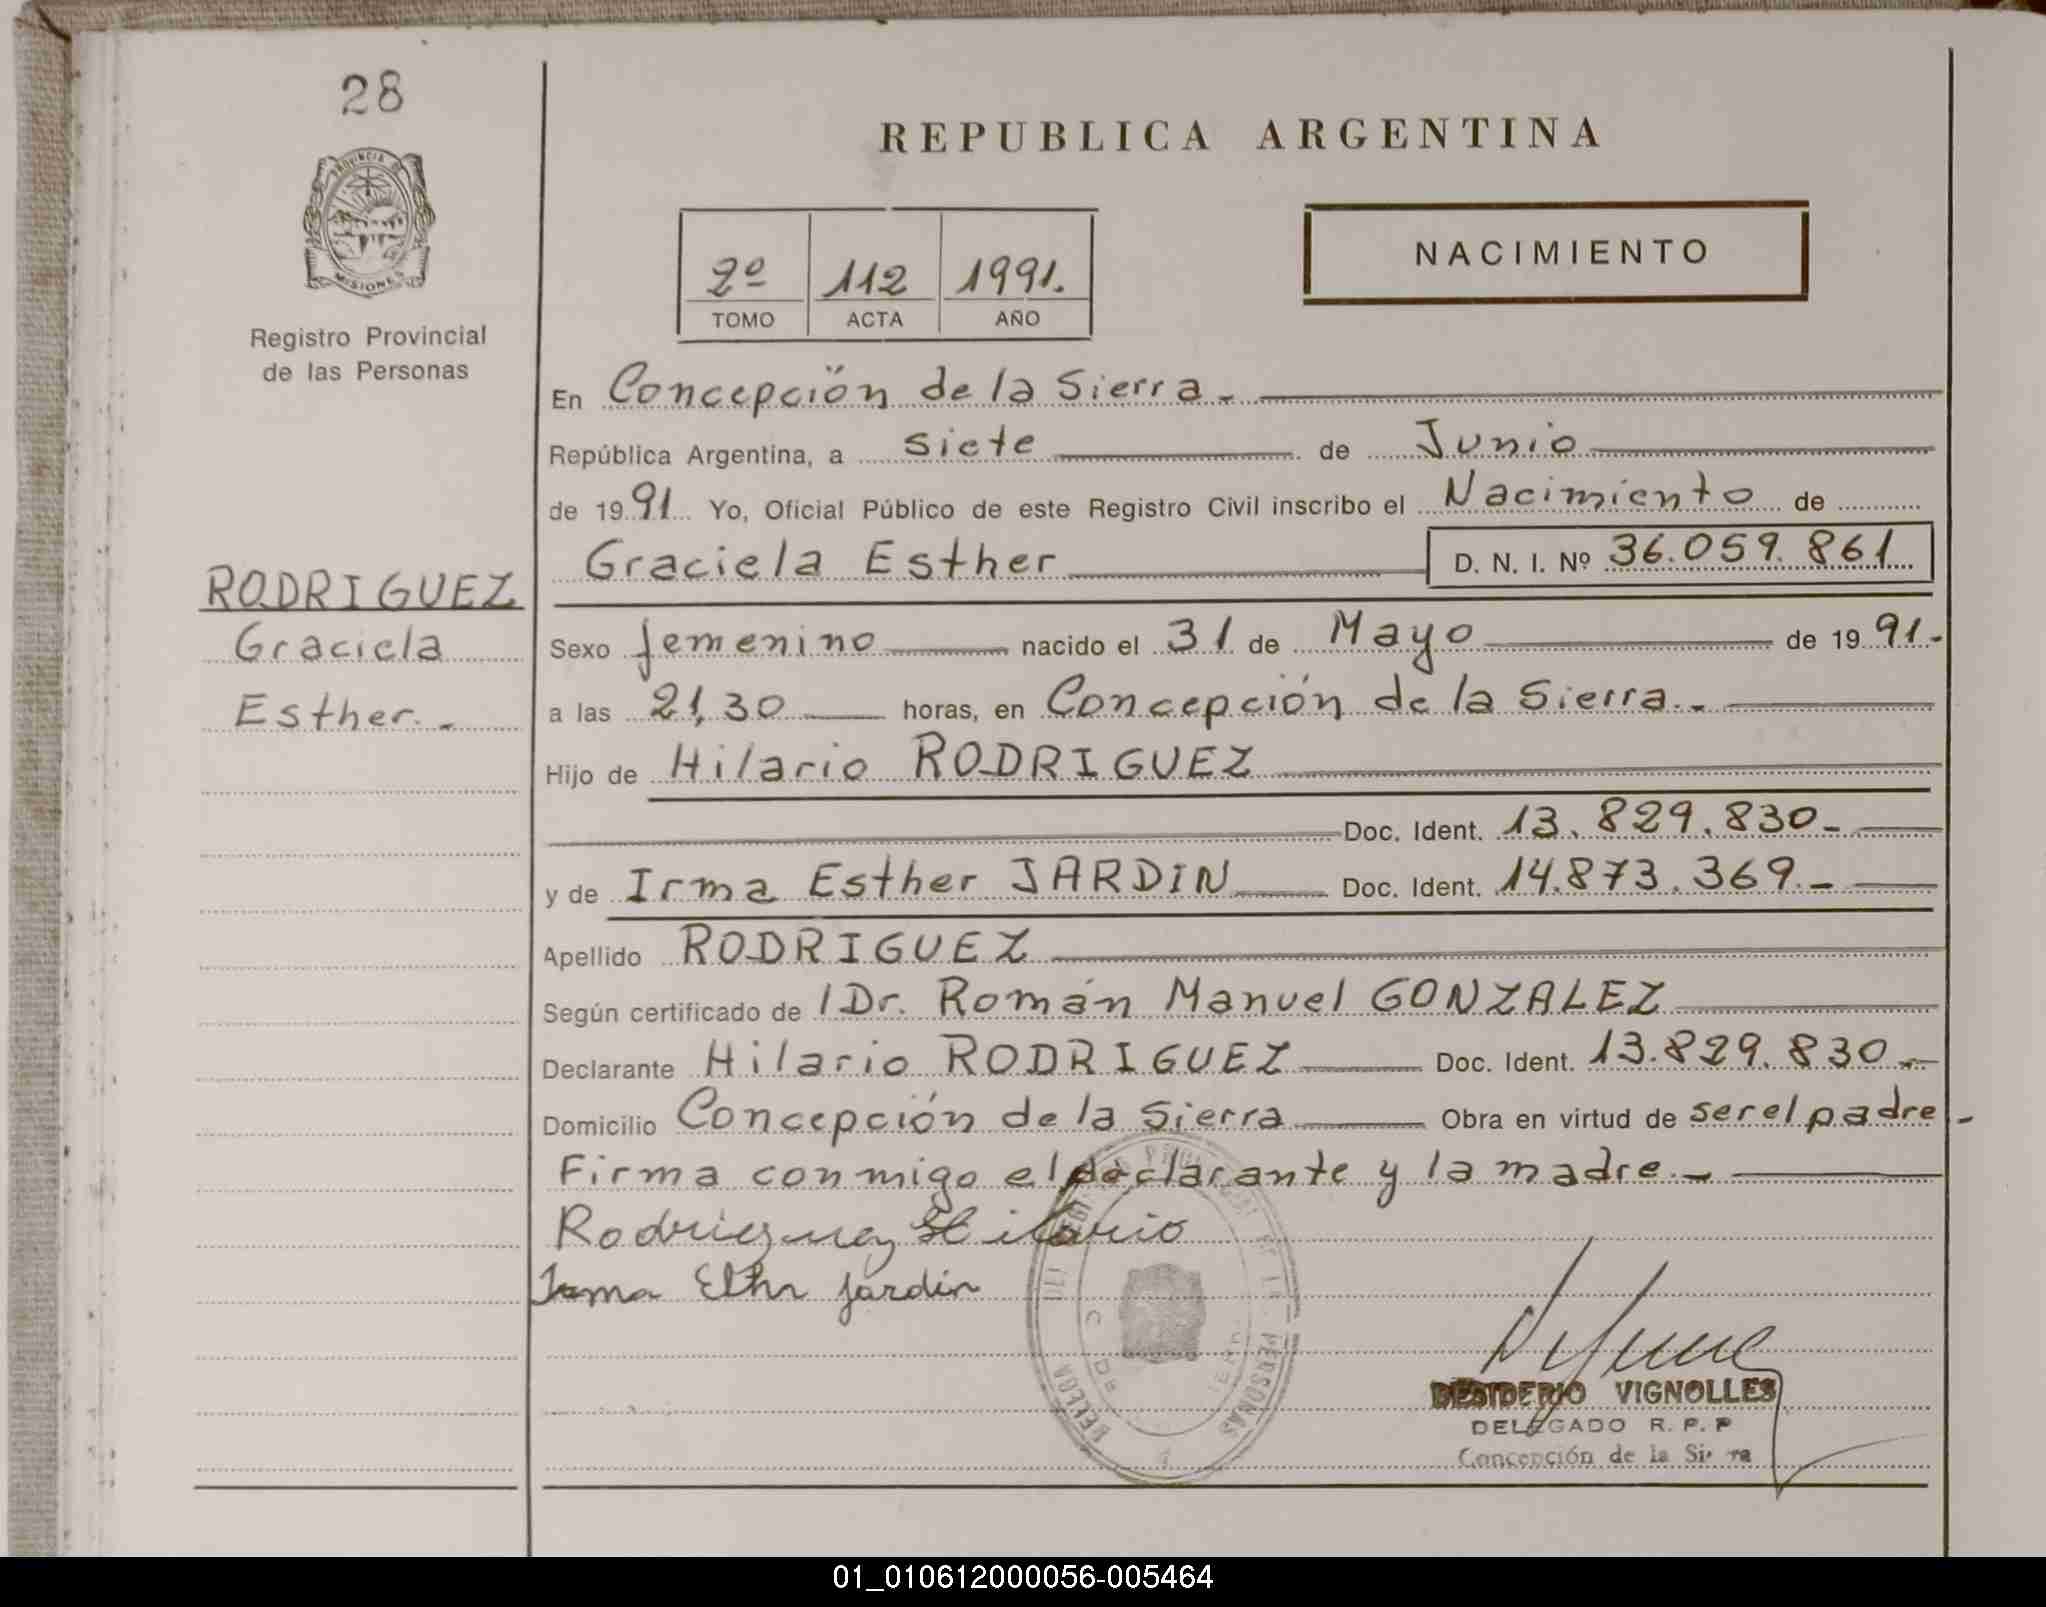 28
REPUBLICA ARGENTINA
PROVINCIA DE
MISIONES
Registro Provincial
de las Personas
2º 112 1991.
TOMO ACTA AÑO
NACIMIENTO
En Concepción de la Sierra.-
República Argentina, a siete de Junio
de 1991 Yo, Oficial Público de este Registro Civil inscribo el Nacimiento de
Graciela Esther D. N. I. Nº 36.059.861
RODRIGUEZ
Graciela
Esther.-
Sexo femenino nacido el 31 de Mayo de 1991.-
a las 21,30 horas, en Concepción de la Sierra.-
Hijo de Hilario RODRIGUEZ
Doc. Ident. 13.829.830-
y de Irma Esther JARDIN Doc. Ident. 14.873.369.-
Apellido RODRIGUEZ
Según certificado de l Dr. Román Manuel GONZALEZ
Declarante Hilario RODRIGUEZ Doc. Ident. 13.829.830.-
Domicilio Concepción de la Sierra Obra en virtud de ser el padre-
Firma conmigo el declarante y la madre.-
Rodrieguez Hilario
Irma Esther Jardin
DESIDERIO VIGNOLLES
DELEGADO R. P. P
Concepción de la Sierra
01_010612000056-005464